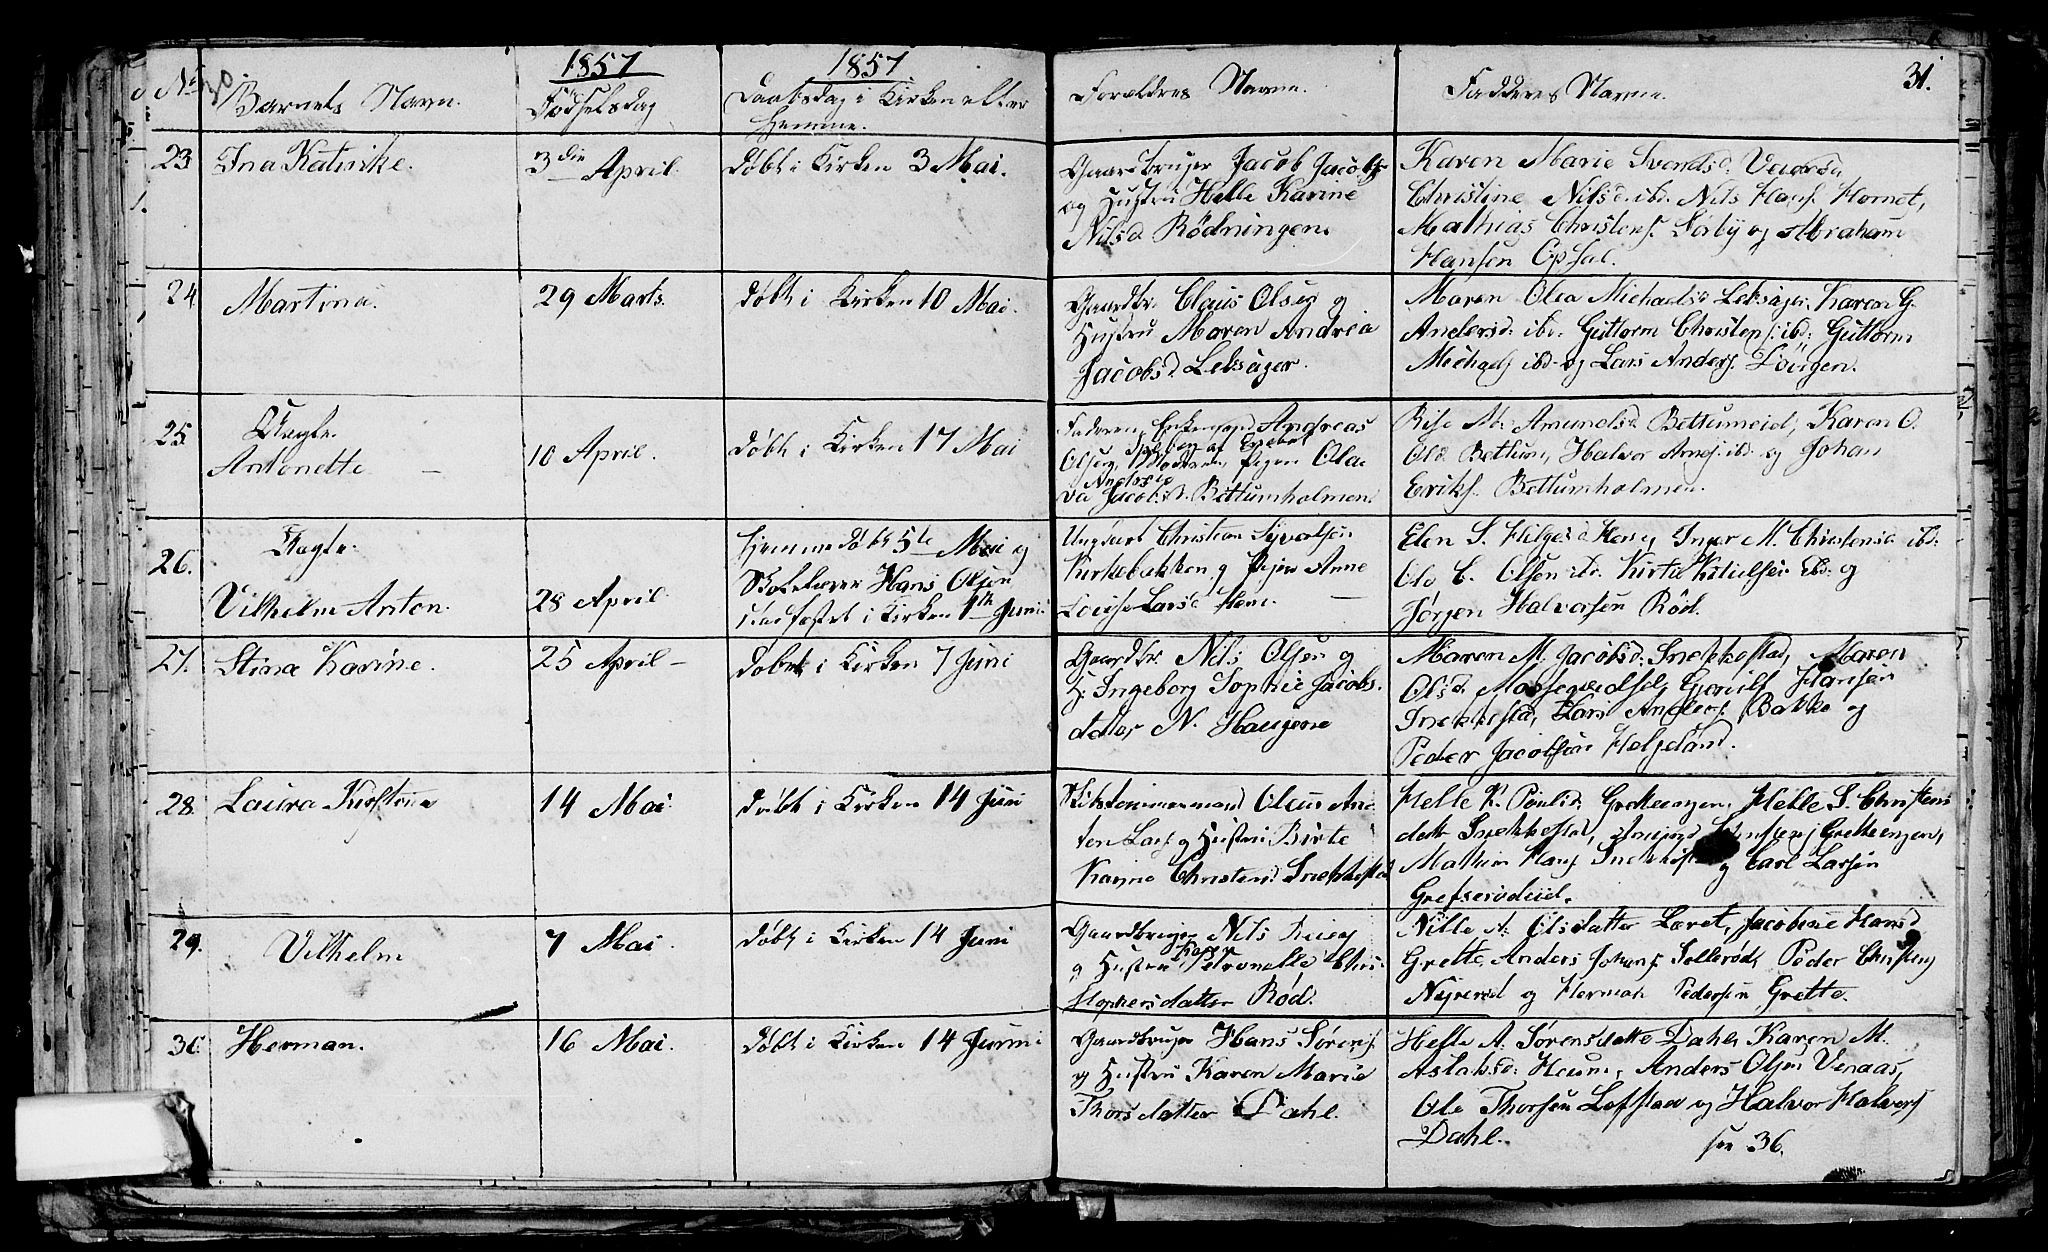 No 30 Barnets Navn.
1857
Födselsdag
1857
Daabsdag i Kirken eller
Hjemme.
Forældres Navne.
Fadderes Navne.
31.
23 Ina Katinke.
3die April.
døbt i Kirken 3 Mai.
Gaardbruger Jacob Jacobs.
og Hustru Helle Karine
Nilsd. Rödningen.
Karen Marie Svendsd.
Christine Nilsd. ibd. Nils Hans.
Mathias Christens. Sørby og Abraham
Hansen Opsal.
24 Martina.
29 Marts.
døbt i Kirken 10 Mai.
Gaardbr. Claus Olsen og
Hustru Maren Andrea
Jacobsd. Leksager.
Maren Olea Michaelsd. Leksager, Karen G.
Andersd. ibd. Guttorm Christens. ibd. Guttorm
Michaels. ibd. og Lars Anders.
25 Uægte.
Antonette
10 April.
døbt i Kirken 17 Mai
Faderen, Enkemand Andreas
Olsen, Moderen, Pigen Ola-
va Jacobsd. Bettumholmen.
Amundsd. Bettumeid, Karen O.
Olsd. Bettum, Halvor Arnes. ibd. og Johan
Eriks. Bettumholmen.
26. Uægte.
Vilhelm Anton.
28 April.
Hjemmedøbt 5te Mai af
Skolelærer Hans Olsen
stadfæstet i Kirken 1ste Juni.
Ungkarl Christian Syvertsen
Kirkebakken og Pigen Anne
Lovise Larsd. Hem.
Elen S. Helgesd. Hem, Inger M. Christensd. ibd.
Ole C. Olsen ibd. ibd. og
Jørgen Halvorsen Röd.
27. Stina Karine.
25 April
døbt i Kirken 7 Juni
Gaardbr. Nils Olsen og
H. Ingeborg Sophie Jacobs-
datter N. Haugene
Maren M. Jacobsd. Snekkestad, Maren
Olsd. Hansen
Snekkestad, Lars Anders. Bakke og
Peder Jacobsen Helgeland.
28. Laura Kirstine
14 Mai.
døbt i Kirken 14 Juni
Olaus An-
ton Lars. og Hustru Birte
Karine Christensd. Snekkestad
Helle K. Poulsd. Gretteengen, Helle S. Christens
datt. Snekkestad, Gretteengen,
Mathias Hans. Snekkestad og Carl Larsen
29. Vilhelm
7 Mai.
døbt i Kirken 14 Juni
Gaardbruger Nils
og Hustru Karen Petronelle Chri-
stophersdatter Röd.
Nille A. Olsdatter Løvet, Jacobine Hansd
Grette, Anders Johans. Sollerød, Peder Christens.
og Herman Pedersen Grette.
30 Herman.
16 Mai.
døbt i Kirken 14 Juni
Gaardbruger Hans Sörens.
og Hustru Karen Marie
Thorsdatter Dahl.
Helle A. Sørensdatte Dahl, Karen M.
Aslaksd. Heum, Anders Olsen Venaas,
Ole Thorsen Lofstad og Halvor Halvors
Dahl.
see 36.